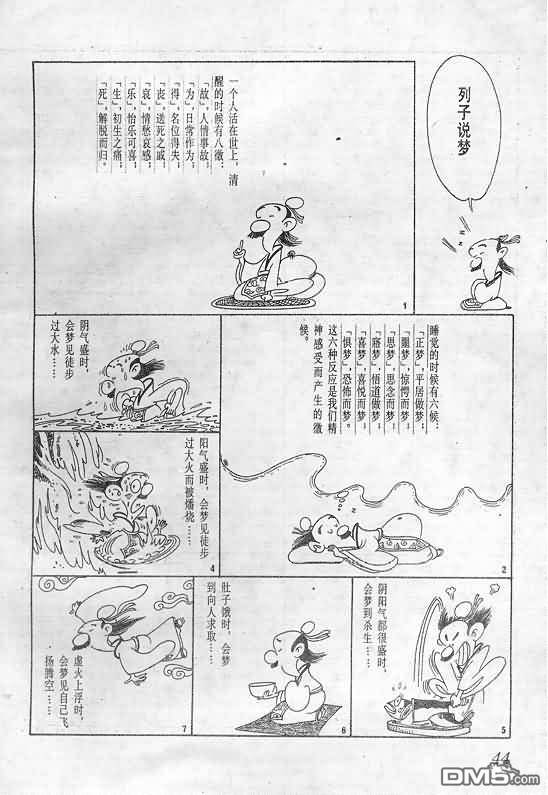 列子说梦
一个人活在世上，清
醒的时候有八徵：
「故」，人情事故；
「为」，日常作为；
「得」，名位得失；
「丧」，送死之戚；
「哀」，情愁哀感；
「乐」，怡乐可喜；
「生」，初生之痛；
「死」，解脱而归。
1
睡觉的时候有六候：
「正梦」，平居做梦；
「噩梦」，惊愕而梦；
「思梦」，思念而梦；
「寤梦」，悟道做梦；
「喜梦」，喜悦而梦；
「惧梦」，恐怖而梦，
这六种反应是我们精
神感受而产生的徵
候。
2
阴气盛时，
会梦见徒步
过大水……
阳气盛时，会梦见徒步
过大火而被燔烧……
4
阴阳气都很盛时，
会梦到杀生……
5
肚子饿时，会梦
到向人求取……
6
虚火上浮时，
会梦见自己飞
扬腾空……
7
44
DM5.com